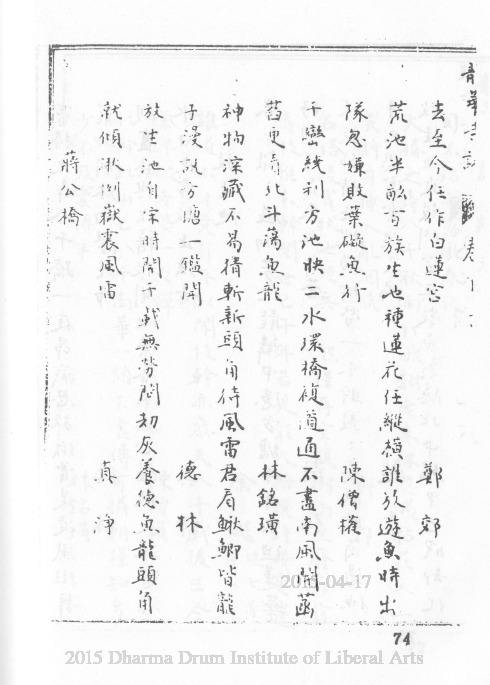 去至今任作白蓮窓　鄭郊
荒池半畝百族生也種蓮花任縱橫誰放遊魚時出
隊忽嫌敗葉礙魚行　陳僧權
千巒繞利方池快二水環橋複道通不盡南風開菡
萏更看北斗蕩魚龍　林銘璜
神物深藏不易猜斬新頭角待風雷君看鰍鯽皆龍
子漫說方塘一鑑開　德林
放生池自宋時開千載無勞問劫灰養德魚龍頭角
就傾湫倒嶽震風雷　真淨
蔣公橋
74
2011-04-17
2015 Dharma Drum Institute of Liberal Arts